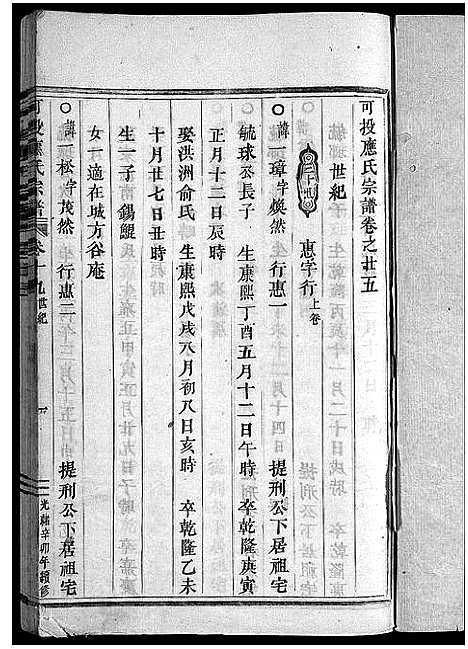 可投應氏宗譜卷之廿五
世紀
三十世 惠字行上卷
諱一璋字煥然 行惠一 提刑公下居祖宅
毓球公長子 生康熙丁酉五月十二日午時 卒乾隆庚寅
正月十二日辰時
娶洪洲俞氏 生康熙戊戌八月初八日亥時 卒乾隆乙未
十月廿七日丑時
生一子 錫鯤
女一適在城方谷庵
諱一松字茂然 行惠二 提刑公下居祖宅
可投應氏宗譜 卷 世紀 一 光緒辛卯年續修